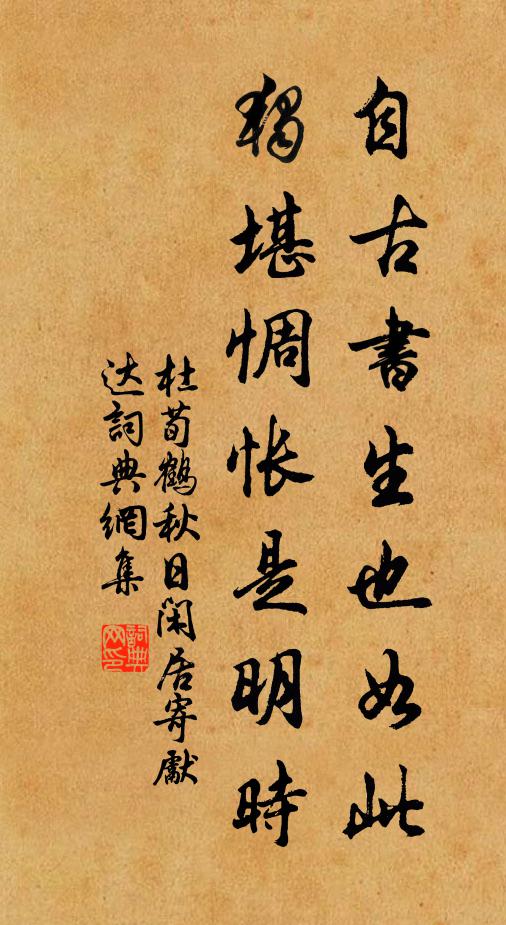 自古書生也如此
獨堪惆怅是明時
杜荀鶴秋日閑居寄獻
达詞典網集
詞典网印